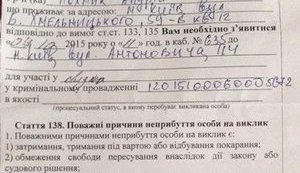 що проживає за адресою: м. Київ вул
Б. Хмельницького, 59-Б кв 12
відповідно до вимог ст.ст. 133, 135 Вам необхідно з'явитися
2015 року о «11» год. в каб. № 635 до
м. Київ вул Антоновича, 114
для участі у
у кримінальному провадженні 12015100060005672
в якості
(процесуальний статус, в якому перебуває викликана особа)
Стаття 138. Поважні причини неприбуття особи на виклик
1. Поважними причинами неприбуття особи на виклик є:
1) затримання, тримання під вартою або відбування покарання;
2) обмеження свободи пересування внаслідок дії закону або
судового рішення;